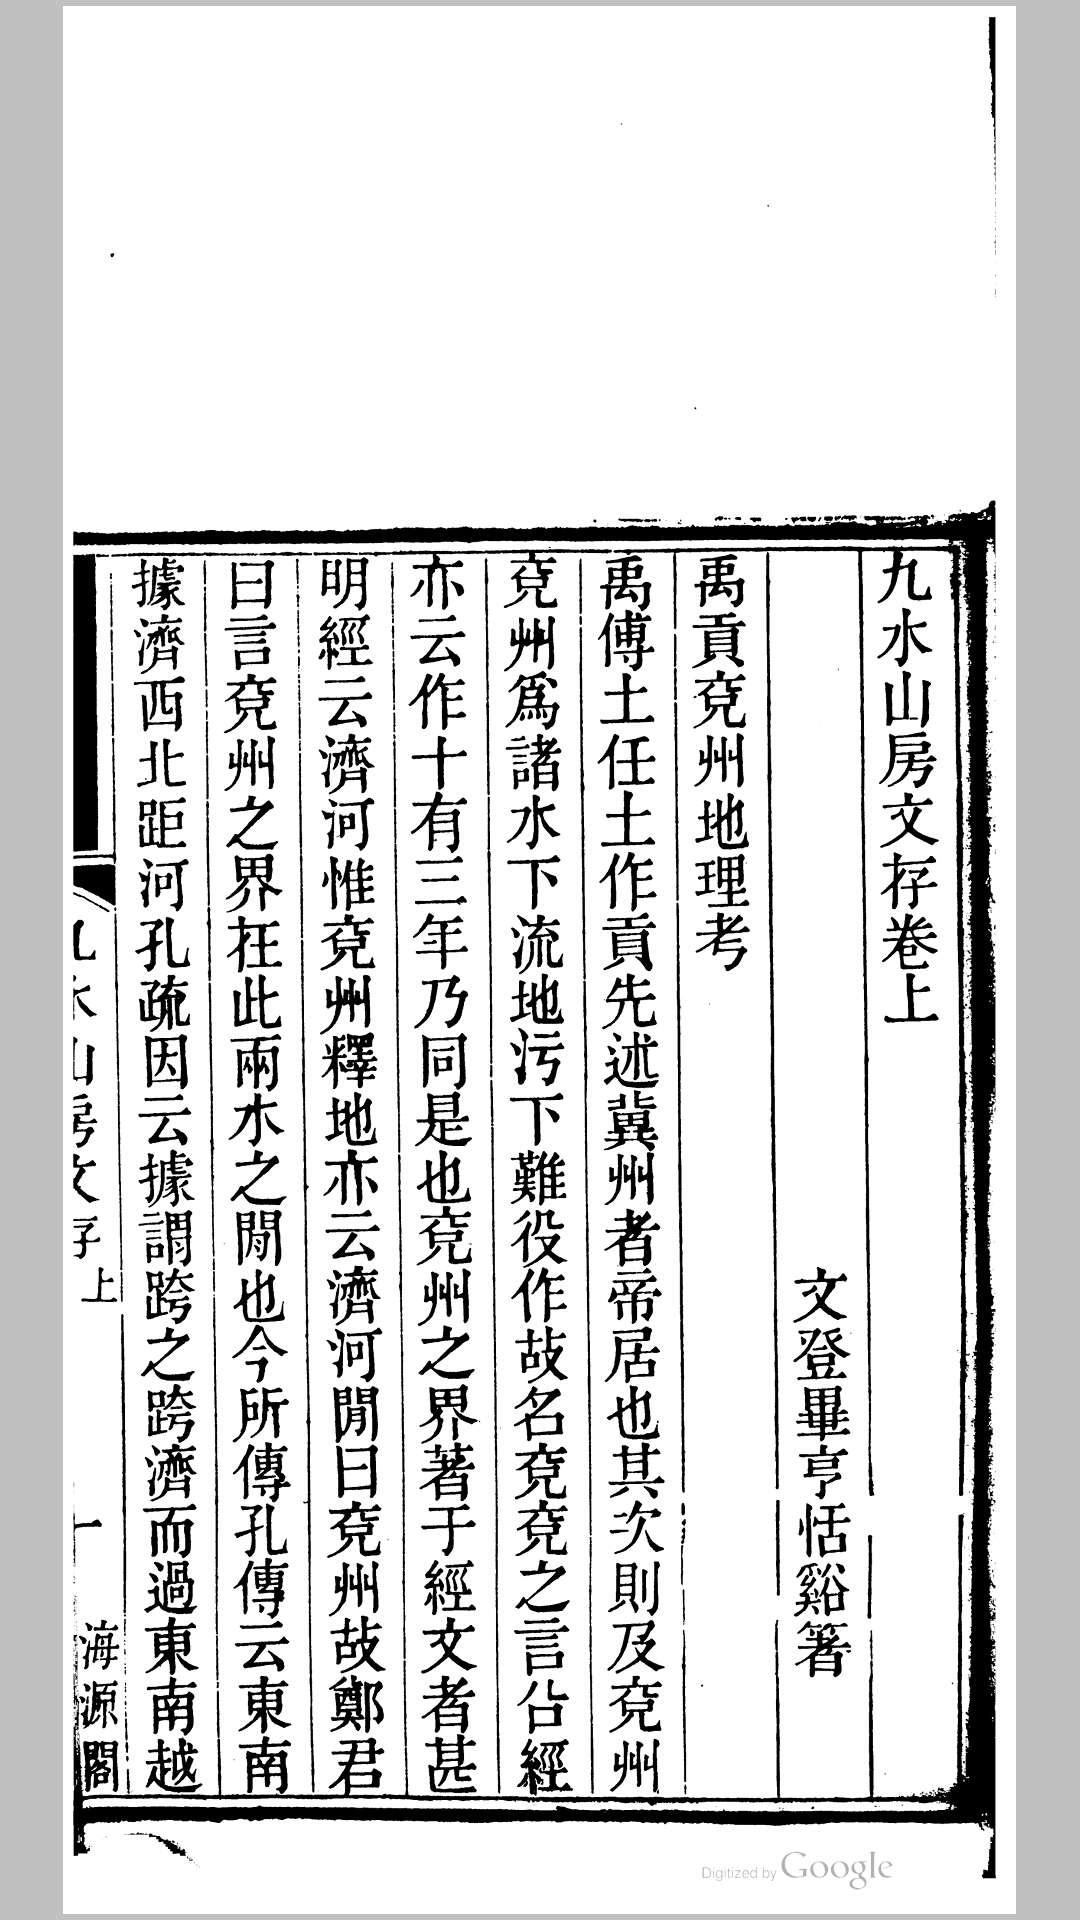 九水山房文存卷上
文登畢亨恬谿箸
禹貢兗州地理考
禹傅土任土作貢先述冀州者帝居也其次則及兗州
兗州爲諸水下流地污下難役作故名兗兗之言㕣經
亦云作十有三年乃同是也兗州之界著于經文者甚
明經云濟河惟兗州釋地亦云濟河閒曰兗州故鄭君
曰言兗州之界在此兩水之閒也今所傳孔傳云東南
據濟西北距河孔疏因云據謂跨之跨濟而過東南越
九水山房文存 上
一
海源閣
Digitized by Google